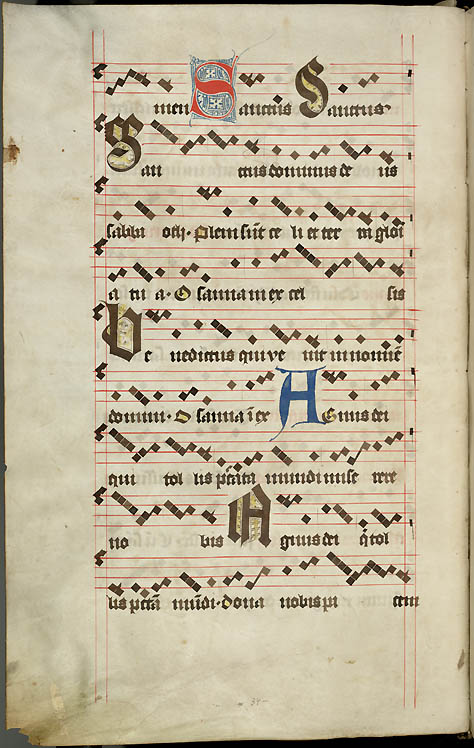 men Sanctus Sanctus
San ctus dominus de us
saba oth · Pleni sūt ce li et ter ra glori
a tu a · O sanna in ex cel sis
Be nedictus qui ve nit in nomine
domini · O sanna ī ex Agnus dei
qui tol lis pctāta mundi mise rere
no bis Agnus dei q̄ tol
lis pctā mūdi · dona nobis pa cem
34